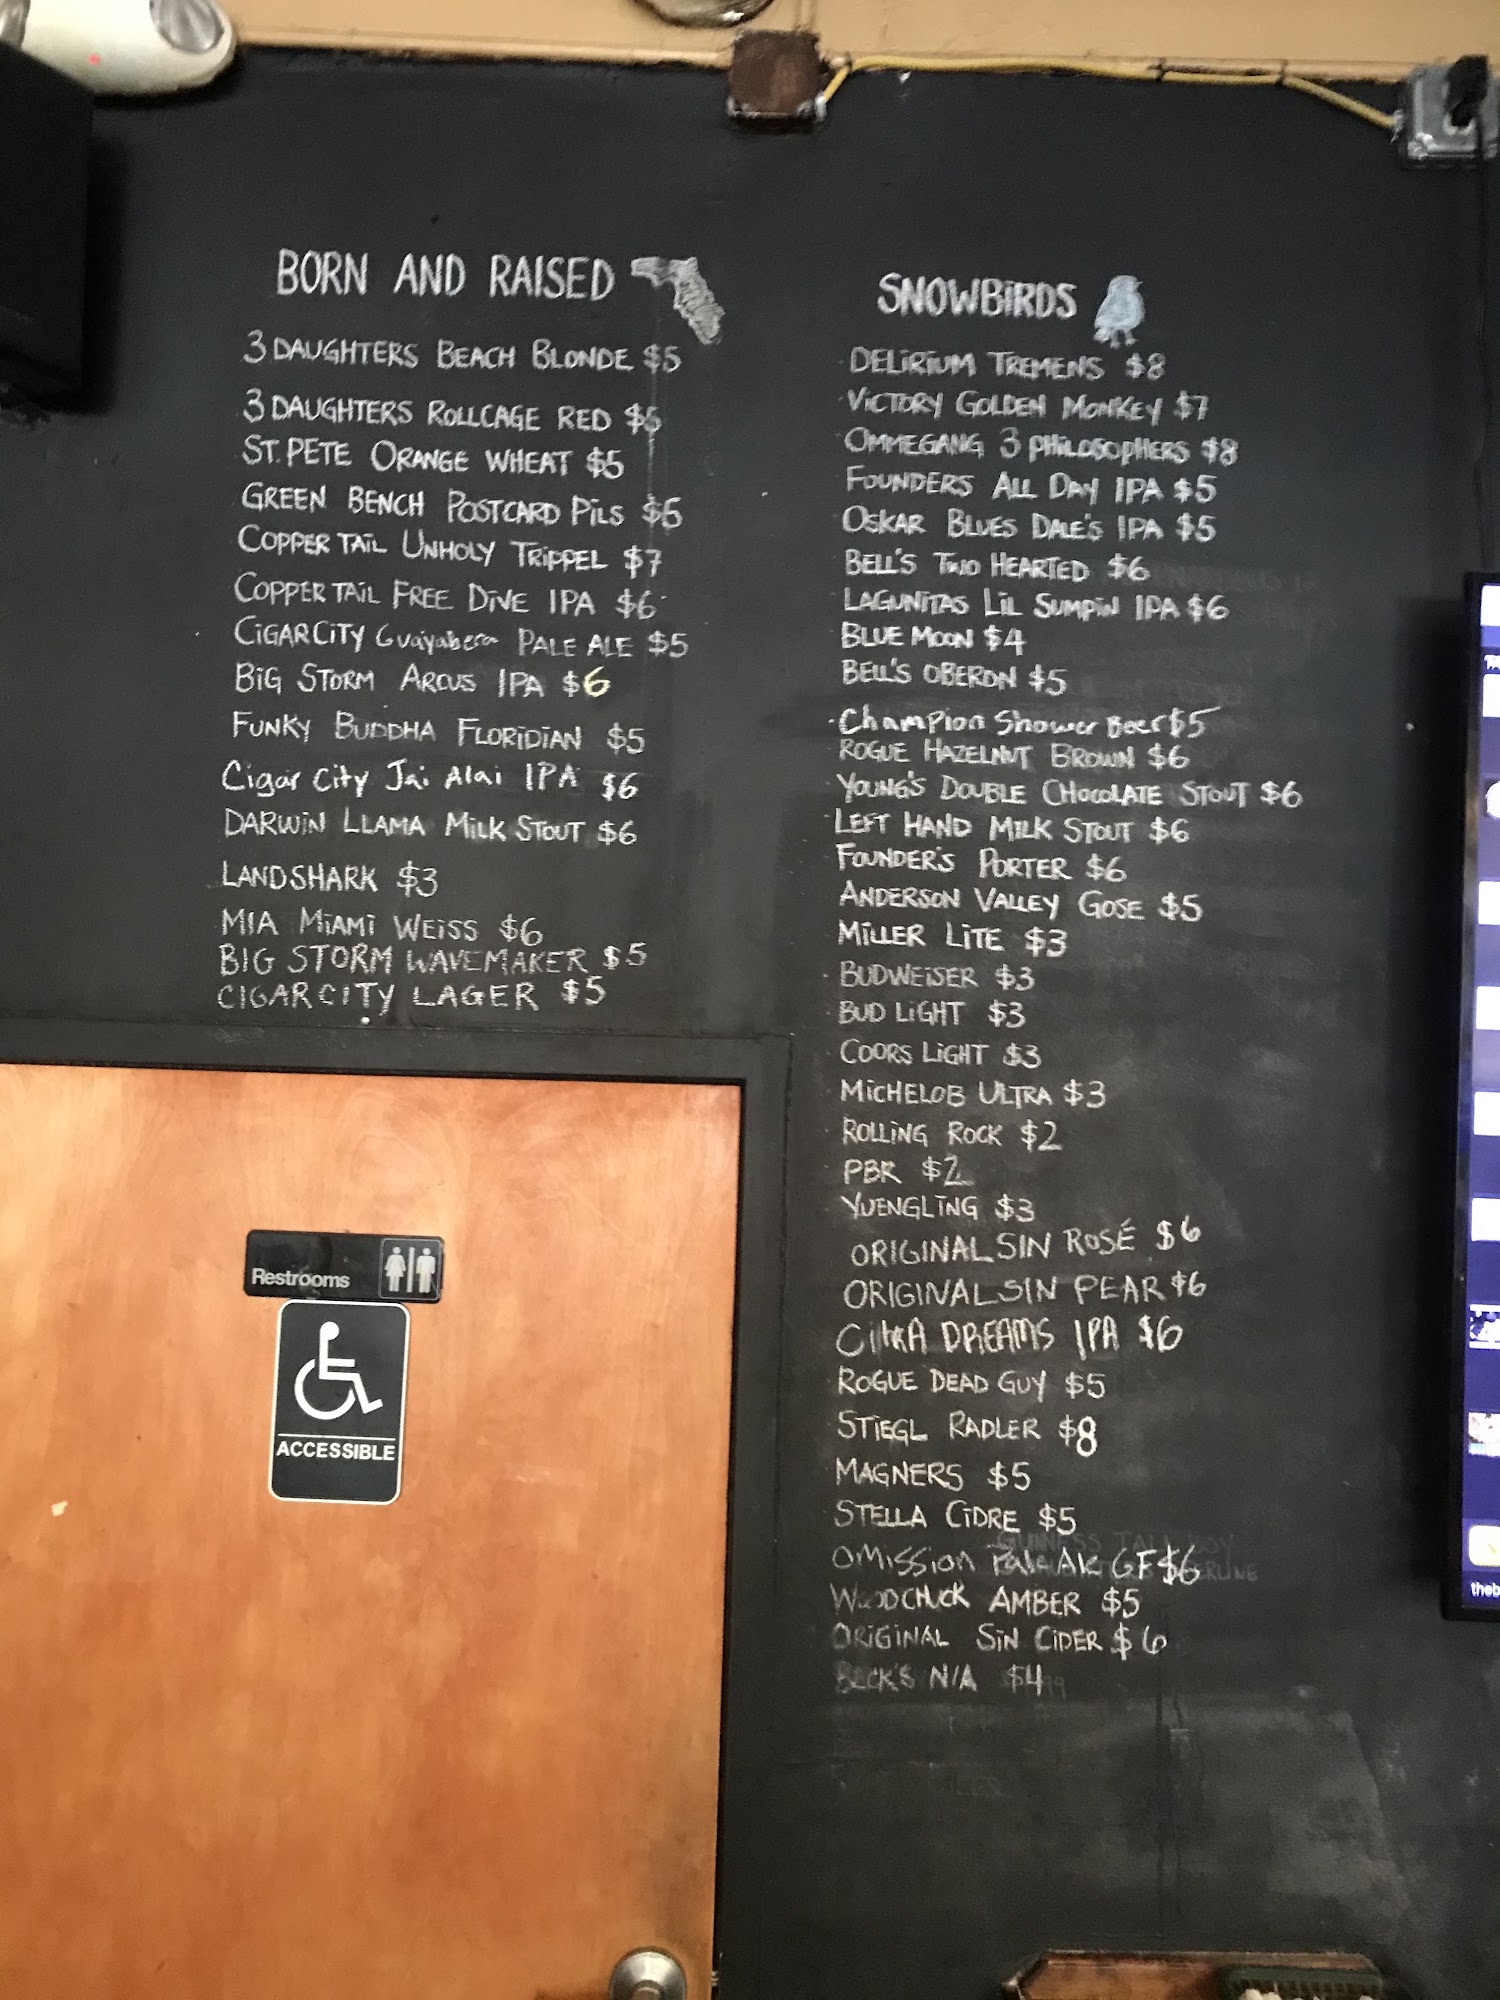 BORN AND RAISED
3 DAUGHTERS BEACH BLONDE $5
3 DAUGHTERS ROLLCAGE RED $5
ST. PETE ORANGE WHEAT $5
GREEN BENCH POSTCARD PILS $5
COPPERTAIL UNHOLY TRIPPEL $7
COPPERTAIL FREE DIVE IPA $6
CIGAR CITY Guayabera PALE ALE $5
BIG STORM ARCUS IPA $6
FUNKY BUDDHA FLORIDIAN $5
Cigar City Jai Alai IPA $6
DARWIN LLAMA MILK STOUT $6
LANDSHARK $3
MIA MIAMI WEISS $6
BIG STORM WAVEMAKER $5
CIGAR CITY LAGER $5
Restrooms
ACCESSIBLE
SNOWBIRDS
DELIRIUM TREMENS $8
VICTORY GOLDEN MONKEY $7
OMMEGANG 3 PHILOSOPHERS $8
FOUNDERS ALL DAY IPA $5
OSKAR BLUES DALE'S IPA $5
BELL'S TWO HEARTED $6
LAGUNITAS LIL SUMPIN IPA $6
BLUE MOON $4
BELL'S OBERON $5
Champion Shower Beer $5
ROGUE HAZELNUT BROWN $6
YOUNG'S DOUBLE CHOCOLATE STOUT $6
LEFT HAND MILK STOUT $6
FOUNDER'S PORTER $6
ANDERSON VALLEY GOSE $5
MILLER LITE $3
BUDWEISER $3
BUD LIGHT $3
COORS LIGHT $3
MICHELOB ULTRA $3
ROLLING ROCK $2
PBR $2
YUENGLING $3
ORIGINAL SIN ROSÉ $6
ORIGINAL SIN PEAR $6
CITRA DREAMS IPA $6
ROGUE DEAD GUY $5
STIEGL RADLER $8
MAGNERS $5
STELLA CIDRE $5
OMISSION Pale Ale GF $6
WOODCHUCK AMBER $5
ORIGINAL SIN CIDER $6
BECK'S N/A $4
theb